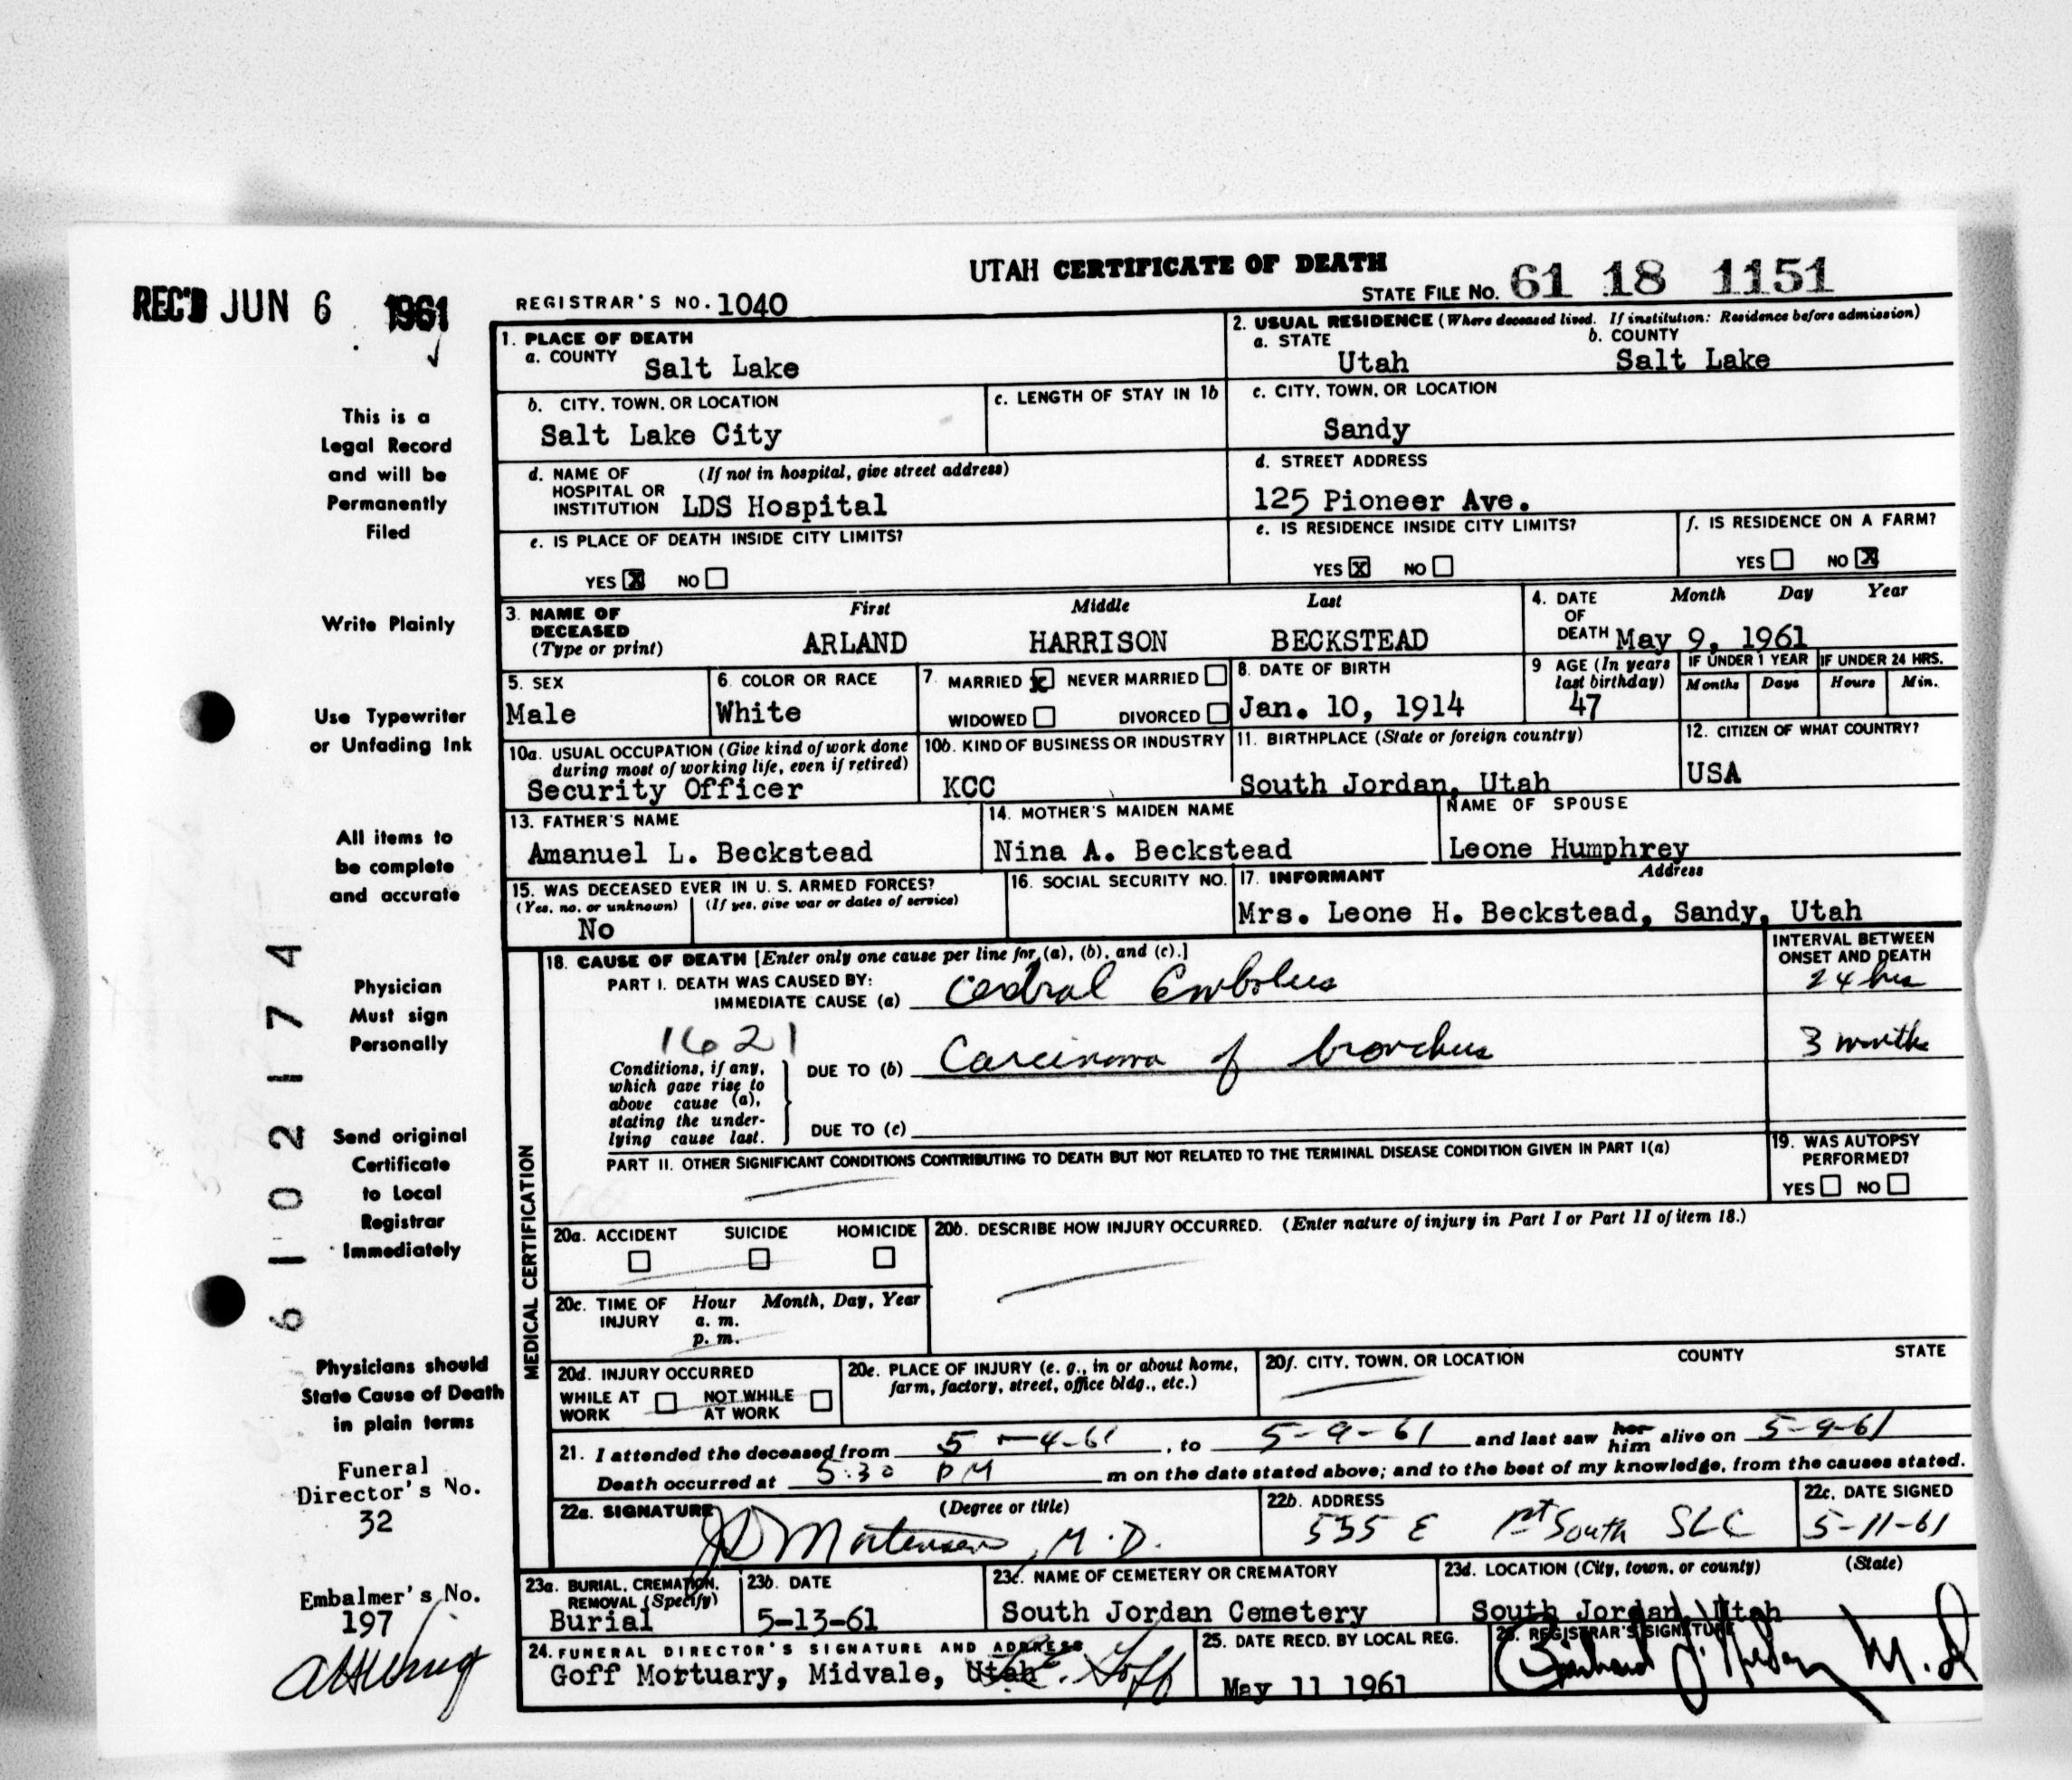 UTAH CERTIFICATE OF DEATH
REC'D JUN 6 1961
REGISTRAR'S NO. 1040
STATE FILE NO. 61 18 1151
1. PLACE OF DEATH
a. COUNTY Salt Lake
2. USUAL RESIDENCE (Where deceased lived. If institution: Residence before admission)
a. STATE Utah
b. COUNTY Salt Lake
b. CITY, TOWN, OR LOCATION
Salt Lake City
c. LENGTH OF STAY IN 1b
c. CITY, TOWN, OR LOCATION
Sandy
d. NAME OF HOSPITAL OR INSTITUTION (If not in hospital, give street address)
LDS Hospital
d. STREET ADDRESS
125 Pioneer Ave.
e. IS PLACE OF DEATH INSIDE CITY LIMITS?
YES X NO
e. IS RESIDENCE INSIDE CITY LIMITS?
YES X NO
f. IS RESIDENCE ON A FARM?
YES NO X
3. NAME OF DECEASED (Type or print)
First Middle Last
ARLAND HARRISON BECKSTEAD
4. DATE OF DEATH
Month Day Year
May 9, 1961
5. SEX
Male
6. COLOR OR RACE
White
7. MARRIED X NEVER MARRIED
WIDOWED DIVORCED
8. DATE OF BIRTH
Jan. 10, 1914
9 AGE (In years last birthday)
47
IF UNDER 1 YEAR
Months Days
IF UNDER 24 HRS.
Hours Min.
10a. USUAL OCCUPATION (Give kind of work done during most of working life, even if retired)
Security Officer
10b. KIND OF BUSINESS OR INDUSTRY
KCC
11. BIRTHPLACE (State or foreign country)
South Jordan, Utah
12. CITIZEN OF WHAT COUNTRY?
USA
13. FATHER'S NAME
Amanuel L. Beckstead
14. MOTHER'S MAIDEN NAME
Nina A. Beckstead
NAME OF SPOUSE
Leone Humphrey
15. WAS DECEASED EVER IN U. S. ARMED FORCES?
(Yes, no, or unknown) (If yes, give war or dates of service)
No
16. SOCIAL SECURITY NO.
17. INFORMANT Address
Mrs. Leone H. Beckstead, Sandy, Utah
MEDICAL CERTIFICATION
18. CAUSE OF DEATH [Enter only one cause per line for (a), (b), and (c).]
INTERVAL BETWEEN ONSET AND DEATH
PART I. DEATH WAS CAUSED BY:
IMMEDIATE CAUSE (a) Embolus
24 hrs
1621
Conditions, if any, which gave rise to above cause (a), stating the underlying cause last.
DUE TO (b) Carcinoma of bronchus
3 months
DUE TO (c)
PART II. OTHER SIGNIFICANT CONDITIONS CONTRIBUTING TO DEATH BUT NOT RELATED TO THE TERMINAL DISEASE CONDITION GIVEN IN PART I(a)
19. WAS AUTOPSY PERFORMED?
YES NO
20a. ACCIDENT SUICIDE HOMICIDE
20b. DESCRIBE HOW INJURY OCCURRED. (Enter nature of injury in Part I or Part II of item 18.)
20c. TIME OF INJURY
Hour Month, Day, Year
a. m.
p. m.
20d. INJURY OCCURRED
WHILE AT WORK NOT WHILE AT WORK
20e. PLACE OF INJURY (e. g., in or about home, farm, factory, street, office bldg., etc.)
20f. CITY, TOWN, OR LOCATION COUNTY STATE
21. I attended the deceased from 5-4-61, to 5-9-61 and last saw her him alive on 5-9-61
Death occurred at 5:30 PM m on the date stated above; and to the best of my knowledge, from the causes stated.
22a. SIGNATURE (Degree or title)
JD Mortensen, M.D.
22b. ADDRESS
535 E 1st South SLC
22c. DATE SIGNED
5-11-61
23a. BURIAL, CREMATION, REMOVAL (Specify)
Burial
23b. DATE
5-13-61
23c. NAME OF CEMETERY OR CREMATORY
South Jordan Cemetery
23d. LOCATION (City, town, or county) (State)
South Jordan, Utah
24. FUNERAL DIRECTOR'S SIGNATURE AND ADDRESS
Goff Mortuary, Midvale, Utah Goff
25. DATE RECD. BY LOCAL REG.
May 11 1961
26. REGISTRAR'S SIGNATURE
M.D
This is a
Legal Record
and will be
Permanently
Filed
Write Plainly
Use Typewriter
or Unfading Ink
All items to
be complete
and accurate
Physician
Must sign
Personally
Send original
Certificate
to Local
Registrar
Immediately
Physicians should
State Cause of Death
in plain terms
Funeral
Director's No.
32
Embalmer's No.
197
6102174